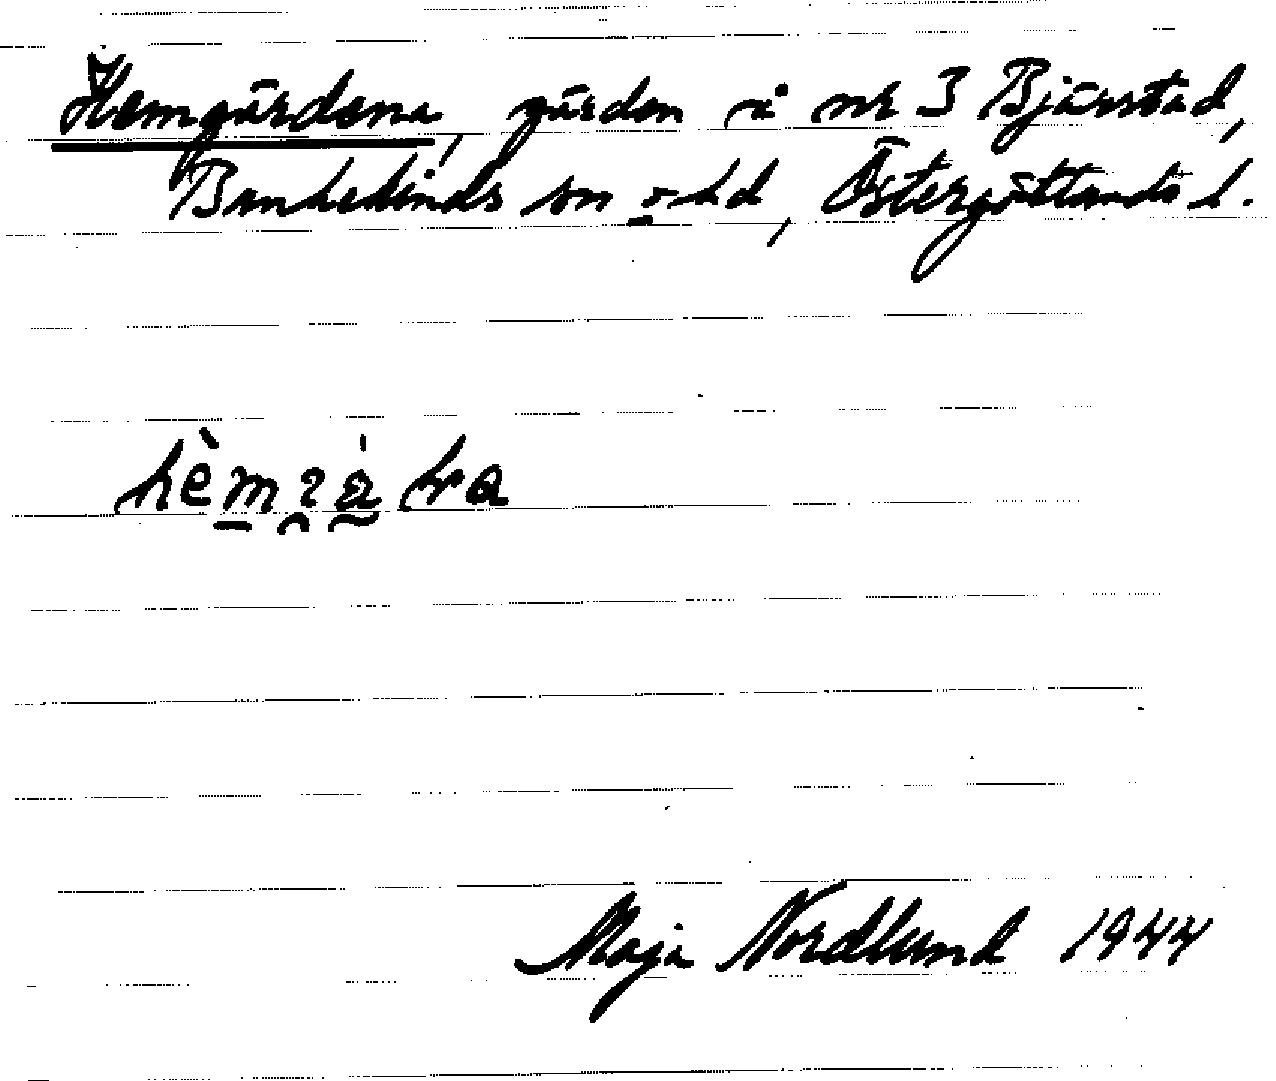 Hemgårdena, gården i nr 3 Bjärstad,
Bankekinds sn o. hd, Östergötlands l.
Maja Nordlund 1944